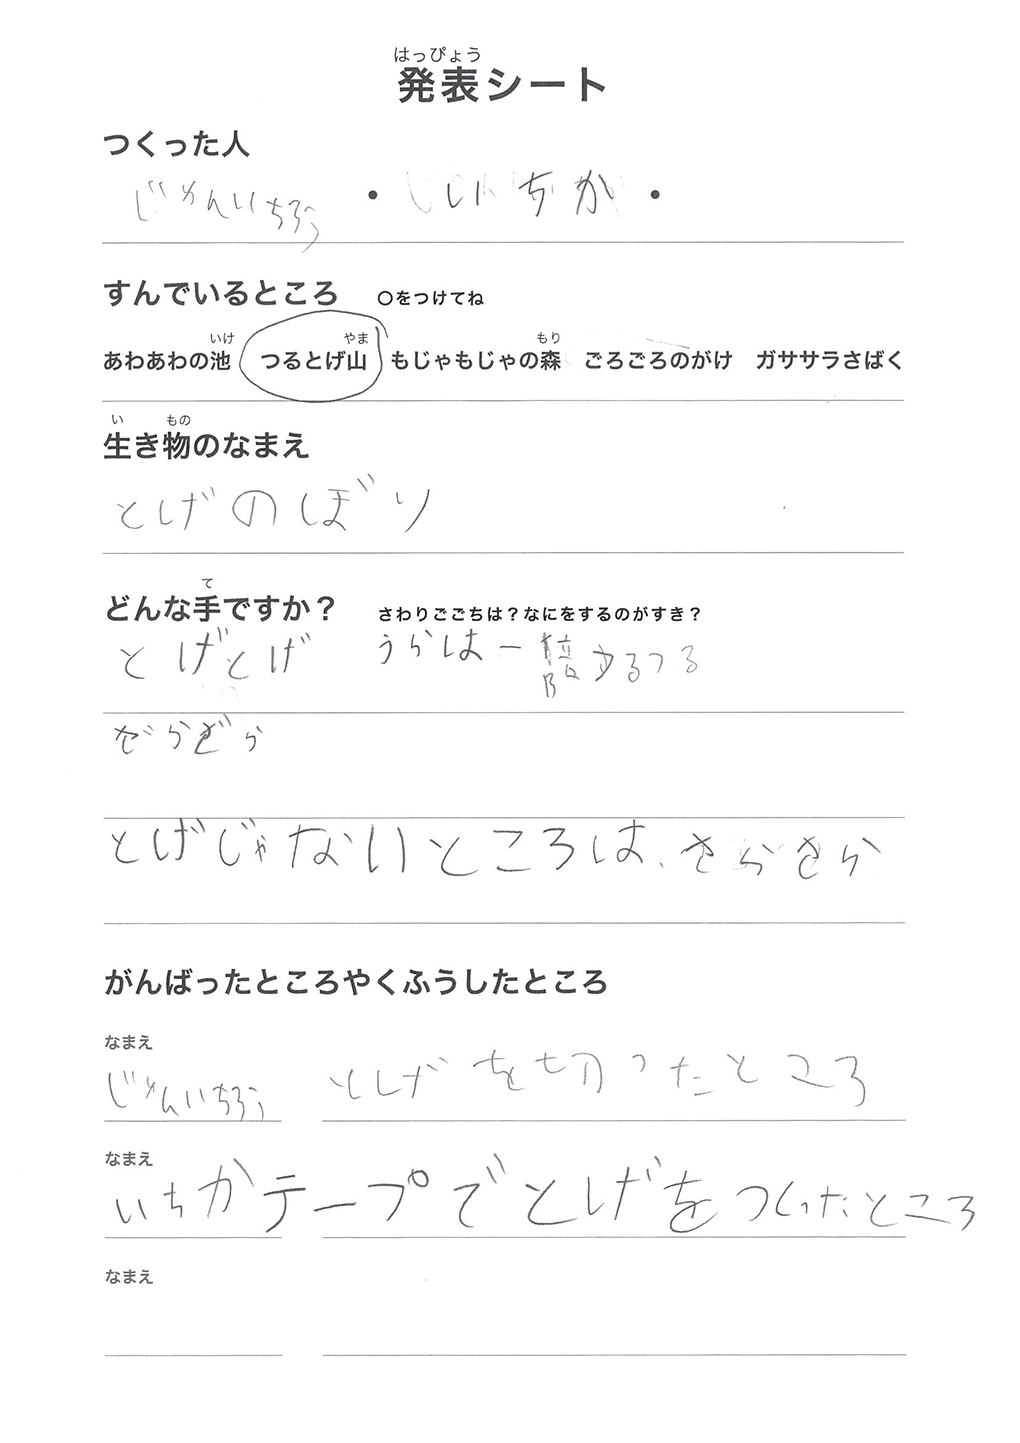 はっぴょう
発表シート
つくった人
じゅんいちろう ・ いちか ・
すんでいるところ ○をつけてね
いけ やま もり
あわあわの池 つるとげ山 もじゃもじゃの森 ごろごろのがけ ガササラさばく
い もの
生き物のなまえ
とげのぼり
て
どんな手ですか？ さわりごごちは？なにをするのがすき？
とげとげ うらは一部つるつる
ざらざら
とげじゃないところは、さらさら
がんばったところやくふうしたところ
なまえ
じゅんいちろう とげを切ったところ
なまえ
いちか テープでとげをつくったところ
なまえ